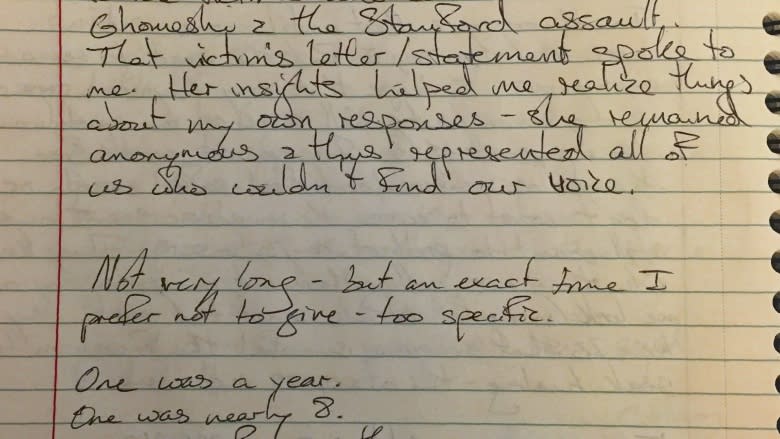 Ghomeshi & the Stanford assault.
That victim's letter/statement spoke to
me. Her insights helped me realize things
about my own responses - she remained
anonymous & thus represented all of
us who couldn't find our voice.
Not very long - but an exact time I
prefer not to give - too specific.
One was a year.
One was nearly 8.